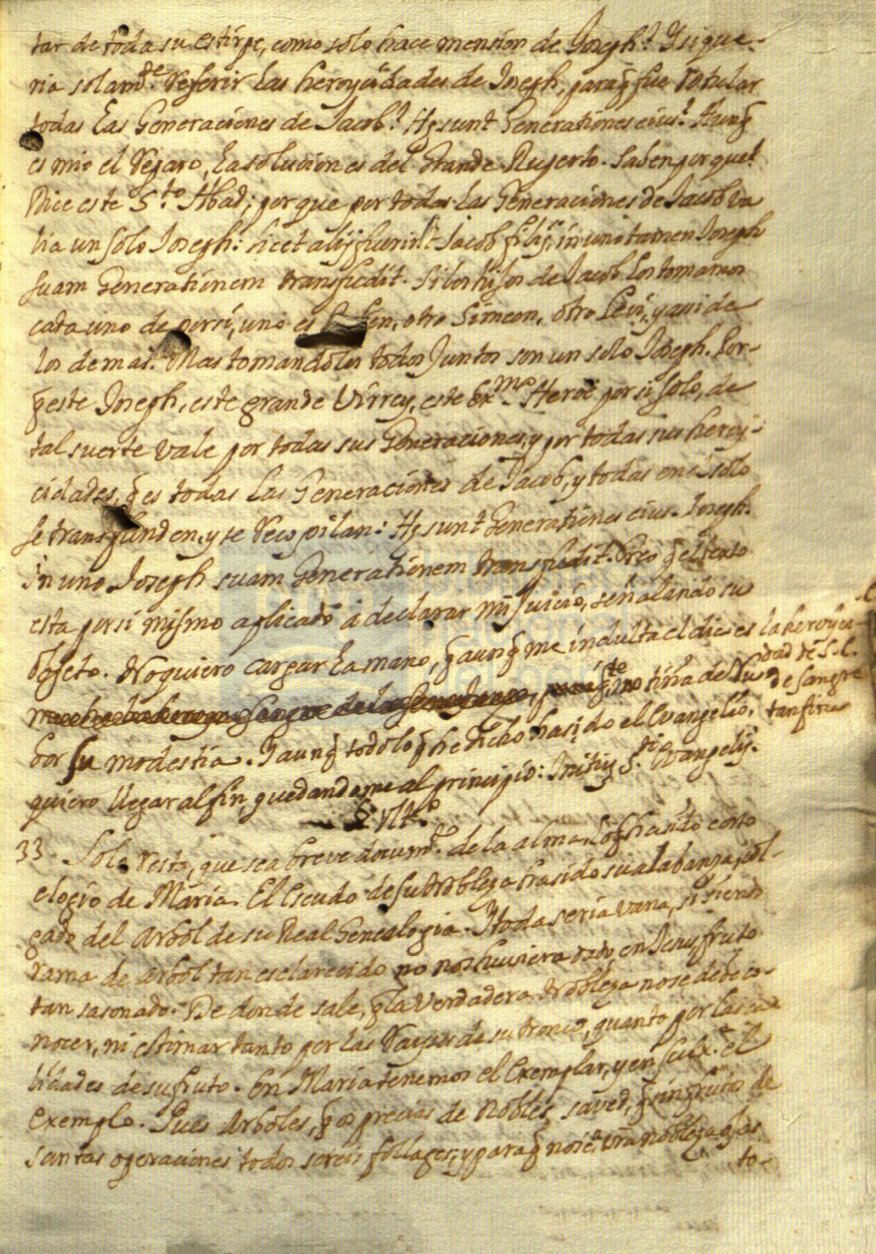 tar de toda su estirpe, como solo hace mension de Joseph? Y si que-
ria solam.te referir las heroycidades de Joseph, para q̃ fue rotular
todas las Generaciones de Jacob? Hę sunt Generationes eius? Aunq̃
es mio el reparo, la solucion es del Grande Ruperto. Saben porque?
Dice este S.to Abad; porque por todas las Generaciones de Jacob va
lia un solo Joseph: licet alij fuerint Jacob filij, in uno tamen Joseph
suam Generationem transfudit. Si los hijos de Jacob los tomamos
cada uno de por si, uno es Ruben, otro Simeon, otro Levi, y assi de
los demas. Mas tomandolos todos Juntos son un solo Joseph. Por-
q̃ este Joseph, este grande Virrey, este Ex.mo Heroe por si solo, de
tal suerte vale por todas sus Generaciones, y por todas sus heroy-
cidades, q̃ es todas las Generaciones de Jacob, y todas en el solo
se transfunden, y se recopilan: Hę sunt Generationes eius. Joseph.
In uno Joseph suam Generationem transfudit. Creo q̃ el texto
esta por si mismo aplicado á declarar mi Juicio, señalando su
objeto. No quiero cargar la mano, q̃ aunq̃ me indulta el dia es la heroyci-
dad de S. E.
de sangre
tan fina
tiña de Ru
bor su modestia. Y aunq̃ todo lo q̃ he dicho ha sido el Evangelio,
quiero llegar al fin quedandome al principio: Initiũ S.ti Evangelij.
§ Vlt.o
33. Solo resta, que sea breve docum.to de la alma lo q̃ ha sido
elogio de Maria. El Escudo de su Nobleza ha sido su alabanza, col-
gado del Arbol de su Real Genealogia. Y toda seria vana, si siendo
rama de arbol tan esclarecido no nos huviera dado en Jesus fruto
tan sasonado. De donde sale, q̃ la verdadera Nobleza no se debe co-
nocer, ni estimar tanto por las Rayzes de su tronco, quanto por las
lidades de su fruto. En Maria tenemos el Exemplar, y en el
Exemplo. Pues Arboles, q̃ os preciais de Nobles, saved, q̃ sin fruto de
santas operaciones todos sereis follages, y para q̃ no sea vr̃a nobleza
to-